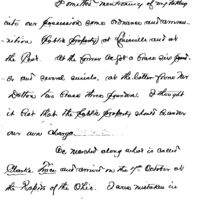 I omitted mentioning of my taking
into our possession some ordnance and ammu-
nition (public property) at Louisville and at
the Post. At the former we got a brass six pound-
er and several swivels, at the latter place two
brass three pounders. I thought
it best that the public property should be under
our own charge.
We marched along what is called
Clark's Trace and arrived on the 7th October at
the Rapids of the Ohio. I was mistaken in